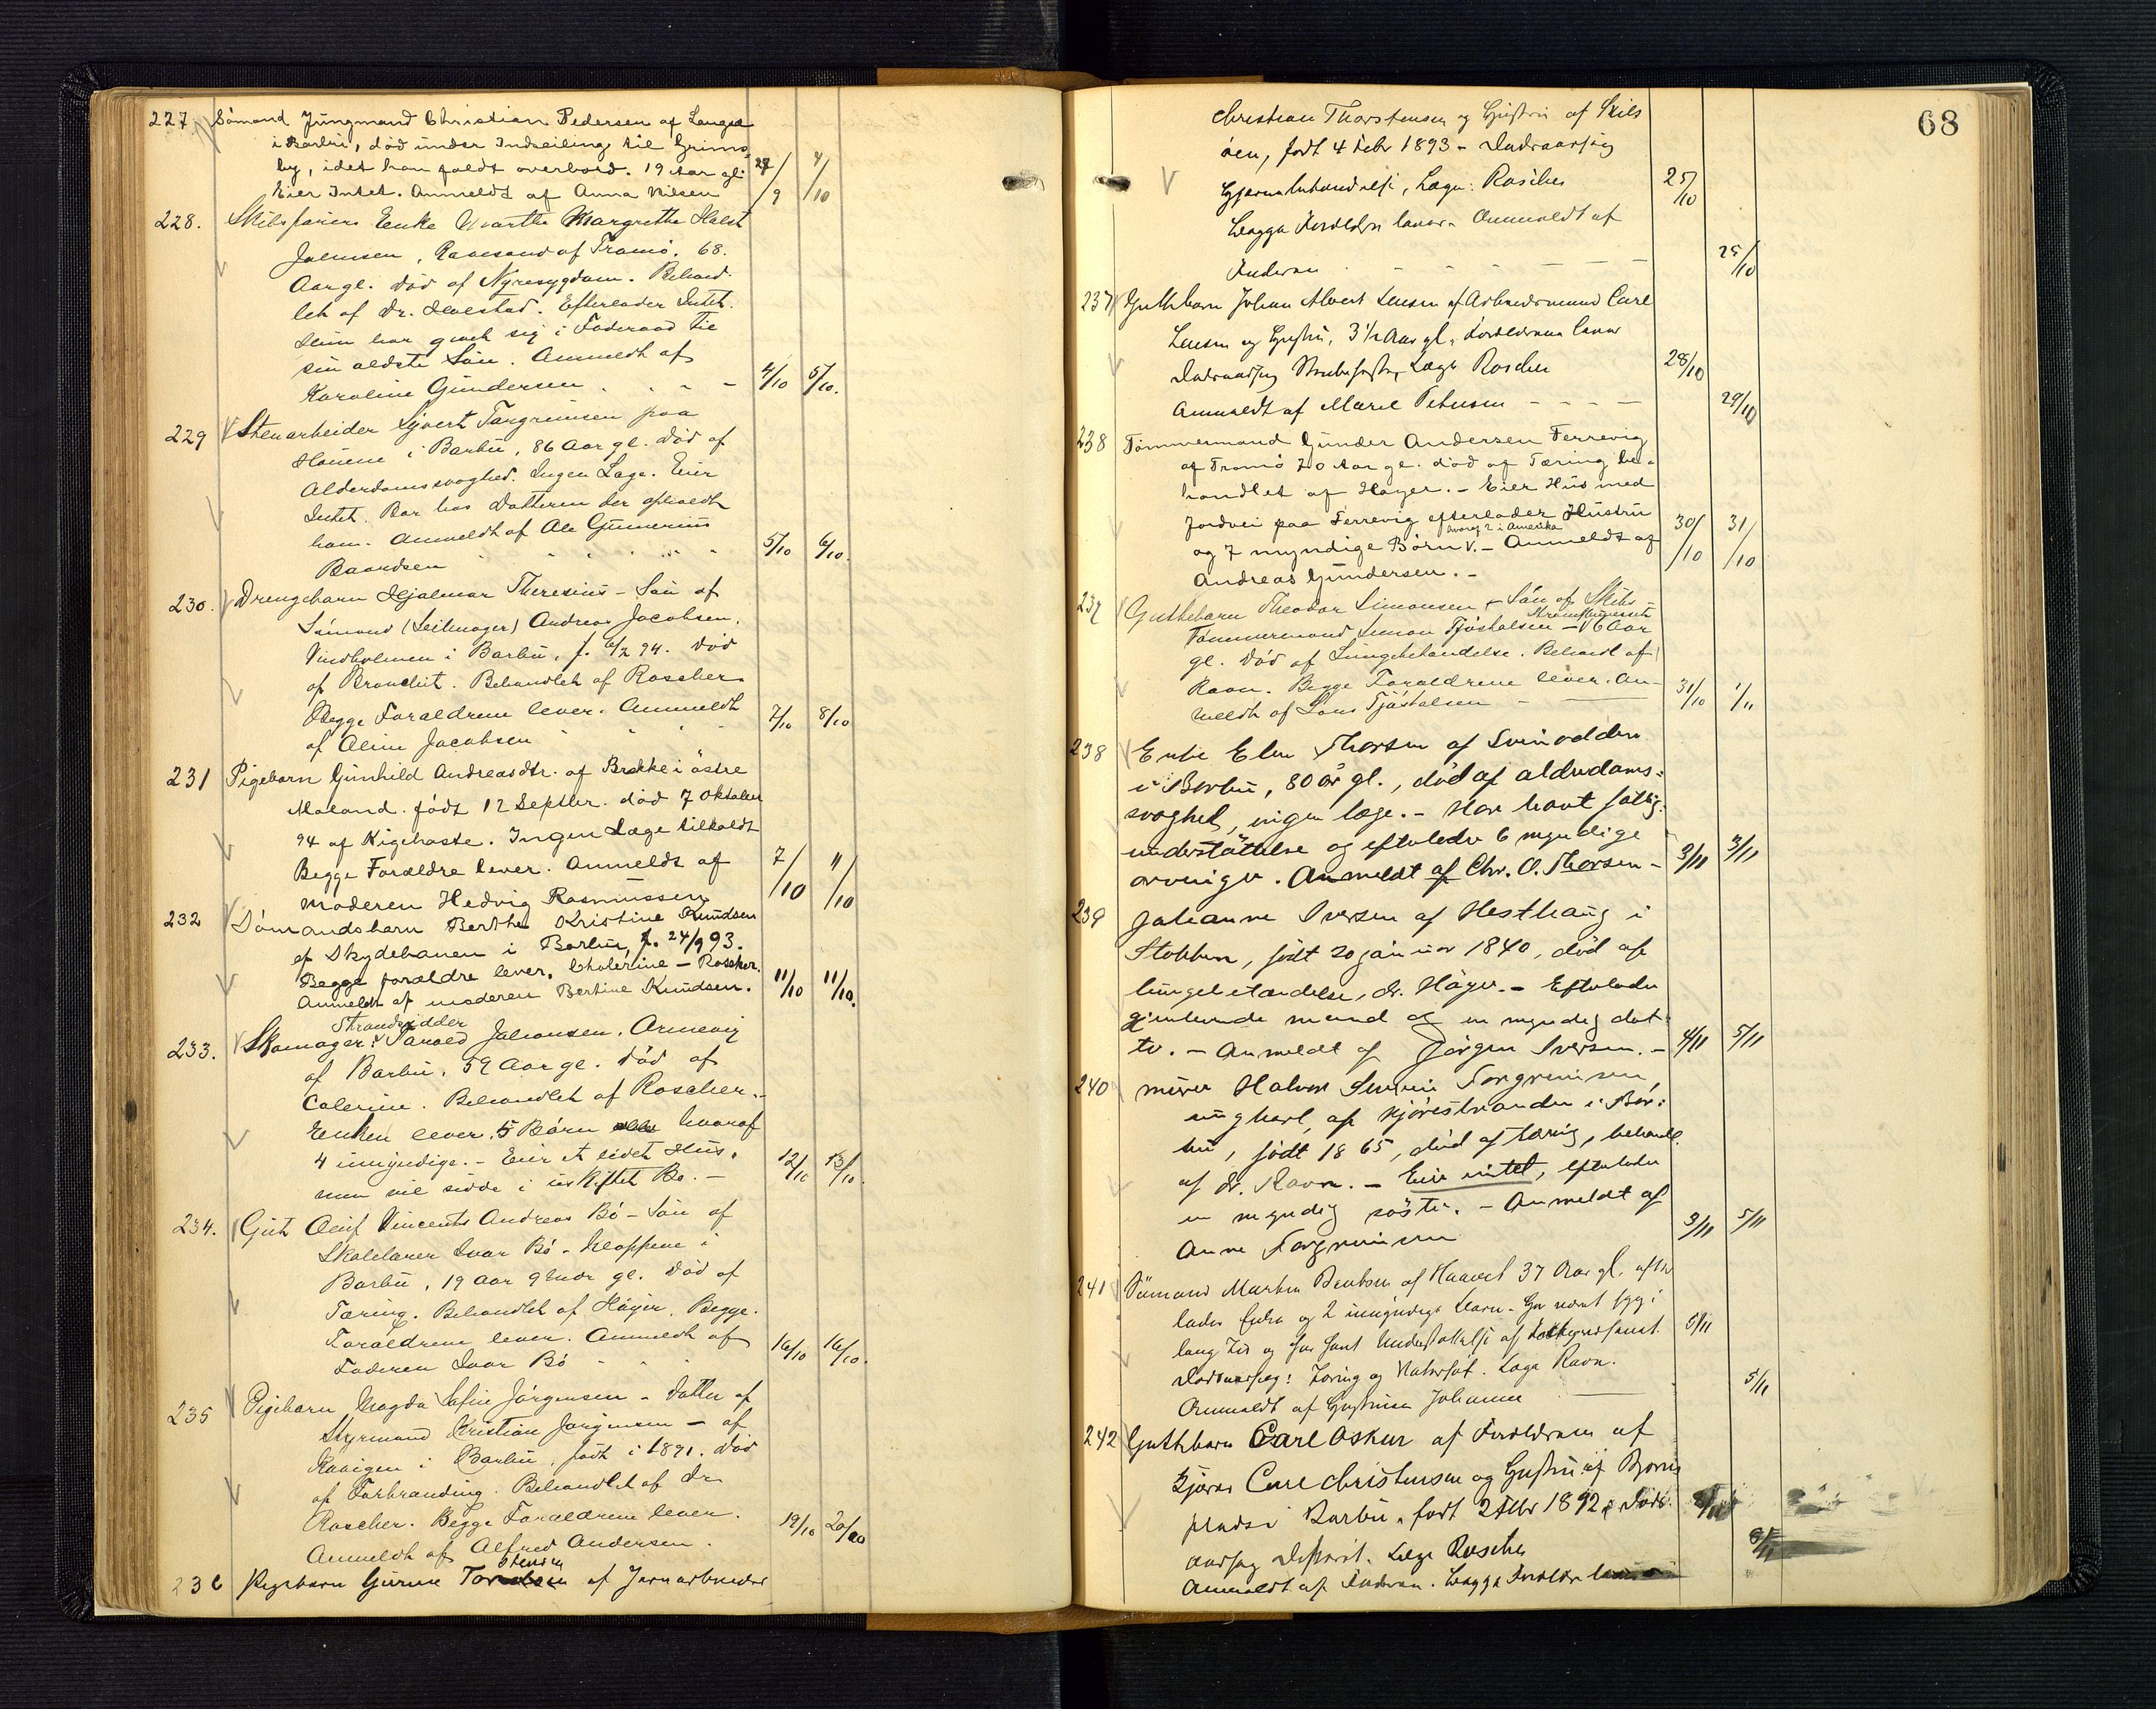 227 Sömand Jungmand Christian Pedersen af Langsæ
i Barbu, död under Indseiling til Grims-
by, idet han faldt overbord. 19 Aar gl. 27/9 4/10
Eier Intet. Anmeldt af Anna Nilsen
228. Skibsförers Enke Marthe Margrethe Holst
Juelmsen, Ravesand af Tromö. 68.
Aar gl. Död af Nyresygdom. Behand-
let af Dr. Hovestad. Efterlader Intet.
Hun har givet sig i Föderaad til
sin ældste Sön. Anmeldt af
Karoline Gundersen 4/10 5/10.
229 Stenarbeider Syvert Targrimsen paa
Houene i Barbu, 86 Aar gl. Död af
Alderdomssvaghed. Ingen Læge. Eier
Intet. Bor hos Datteren der opholdt
ham. Anmeldt af Ole Gunnerius
Baardsen 5/10 6/10.
230. Drengebarn Hjalmar Theresius - Sön af
Sömand (Seilmager) Andreas Jacobsen.
Vindholmen i Barbu, f. 6/2 94. Död
af Bronchit. Behandlet af Roscher
Begge Forældrene lever. Anmeldt
af Oline Jacobsen 7/10 8/10
231 Pigebarn Gunhild Andreasdtr. af Brekke i östre
Moland. födt 12 Septbr. död 7 Oktober
94 af Kighoste. Ingen Læge tilkaldt
Begge Forældre lever. Anmeldt af 7/10 11/10
moderen Hedvig Rasmussen
232 Sömandsbarn Berthe Kristine Knudsen
af Skydebanen i Barbu, f. 24/9 93.
Begge forældre lever. Cholerine - Roscher.
Anmeldt af moderen Bertine Knudsen. 11/10 11/10.
Strandsidder
233. Skomager Sarold Johansen. Arnevig
af Barbu. 59 Aar gl. Död af
Colerine. Behandlet af Roscher.
Enken lever. 5 Börn hvoraf
4 umyndige. - Eier et lidet Hus,
men vil sidde i uskiftet Bo. - 12/10 13/10.
234. Gut Oluf Vincents Andreas Bö - Sön af
Skolelærer Ivar Bö - Kloppene i
Barbu, 19 Aar 9 Mdr gl. Död af
Tæring. Behandlet af Höyer. Begge
Forældrene lever. Anmeldt af
Faderen Ivar Bö 16/10 16/10.
235 Pigebarn Magda Sofie Jörgensen - Datter af
Styrmand Kristian Jörgensen - af
Kuvigen i Barbu, födt i 1891. Död
af Forbrænding. Behandlet af Dr
Roscher. Begge Forældrene lever.
Anmeldt af Alfred Andersen. 19/10 20/10
236 Pigebarn Gurine Torstensen af Jernarbeider
68
Christian Thorstensen og Hustru af Skils
öen, födt 4 Febr 1893 - Dødsaarsag
Hjernebetændelse, Læge: Roscher 25/10
Begge Forældre lever. Anmeldt af
Faderen 25/10
237 Guttebarn Johan Albert Larsen af Arbeidsmand Carl
Larsen og Hustru, 3 1/2 Aar gl. Forældrene lever
Dødsaarsag Strubehoste, Læge Roscher 28/10
Anmeldt af Marie Petersen 29/10
238 Tömmermand Gunder Andersen Færrevig
af Tromö 70 Aar gl. död af Tæring be-
handlet af Höyer. - Eier Hus med
Jordvei paa Færrevig efterlader Hustru
hvoraf 2 i Amerika
og 7 myndige Börn V. - Anmeldt af 30/10 31/10
Andreas Gundersen. -
239 Guttebarn Theodor Simonsen, - Sön af Skibs-
Tömmermand Simon Tjöstolsen - 6 Aar
gl. Död af Lungebetændelse. Behandl af
Ravn. Begge Forældrene lever. An-
meldt af Lars Tjöstolsen 31/10 1/11
238 Enke Elen Thorsen af Svinodden
i Barbu, 80 år gl., död af alderdoms-
svaghed, ingen læge. - Har havt fattig-
understöttelse og efterlader 6 myndige
arvinger. Anmeldt af Chr. O. Thorsen - 3/11 3/11
239 Johanne Iversen af Hesthaug i
Stokken, födt 20 januar 1840, död af
lungebetændelse, dr. Höyer. - Efterlader
gjenlevende mand og en myndig dat-
ter. - Anmeldt af Jörgen Iversen. - 4/11 5/11
240 murer Halvor Severin Torgrimsen,
ungkarl, af Kjörestranden i Bar-
bu, födt 1865, död af tæring, behandl.
af dr. Ravn. - Eier intet, efterlader
en myndig söster. - Anmeldt af
Anne Torgrimsen 3/11 5/11
241 Sömand Morten Bentsen af Haavet 37 Aar gl. efter
lader Enke og 2 umyndige Barn. Har været syg i
lang Tid og har havt Understøttelse af 5/11
Dødsaarsag: Tæring og Vatersot. Læge Ravn.
Anmeldt af Hustruen Johanne 5/11
242 Guttebarn Carl Oskar af Forældrene af
Kjörer Carl Christensen og Hustru af Bjorns
plads i Barbu, födt 2 Febr 1892, Døds-
aarsag Difterit. Læge Roscher
Anmeldt af Faderen. Begge Forældre lever